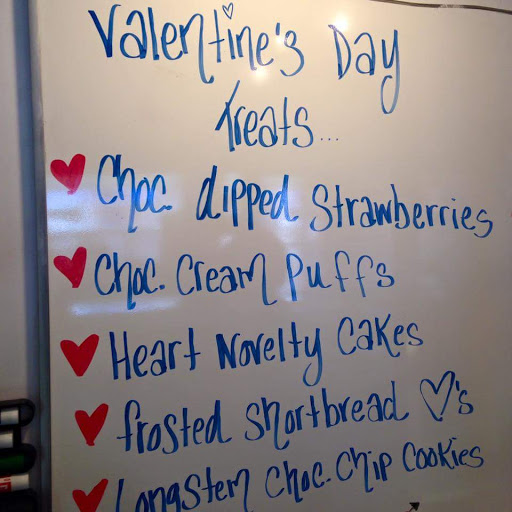 Valentine's Day
Treats...
Choc. dipped Strawberries
Choc. Cream Puffs
Heart Novelty Cakes
frosted Shortbread ♡'s
Longstem Choc. Chip Cookies